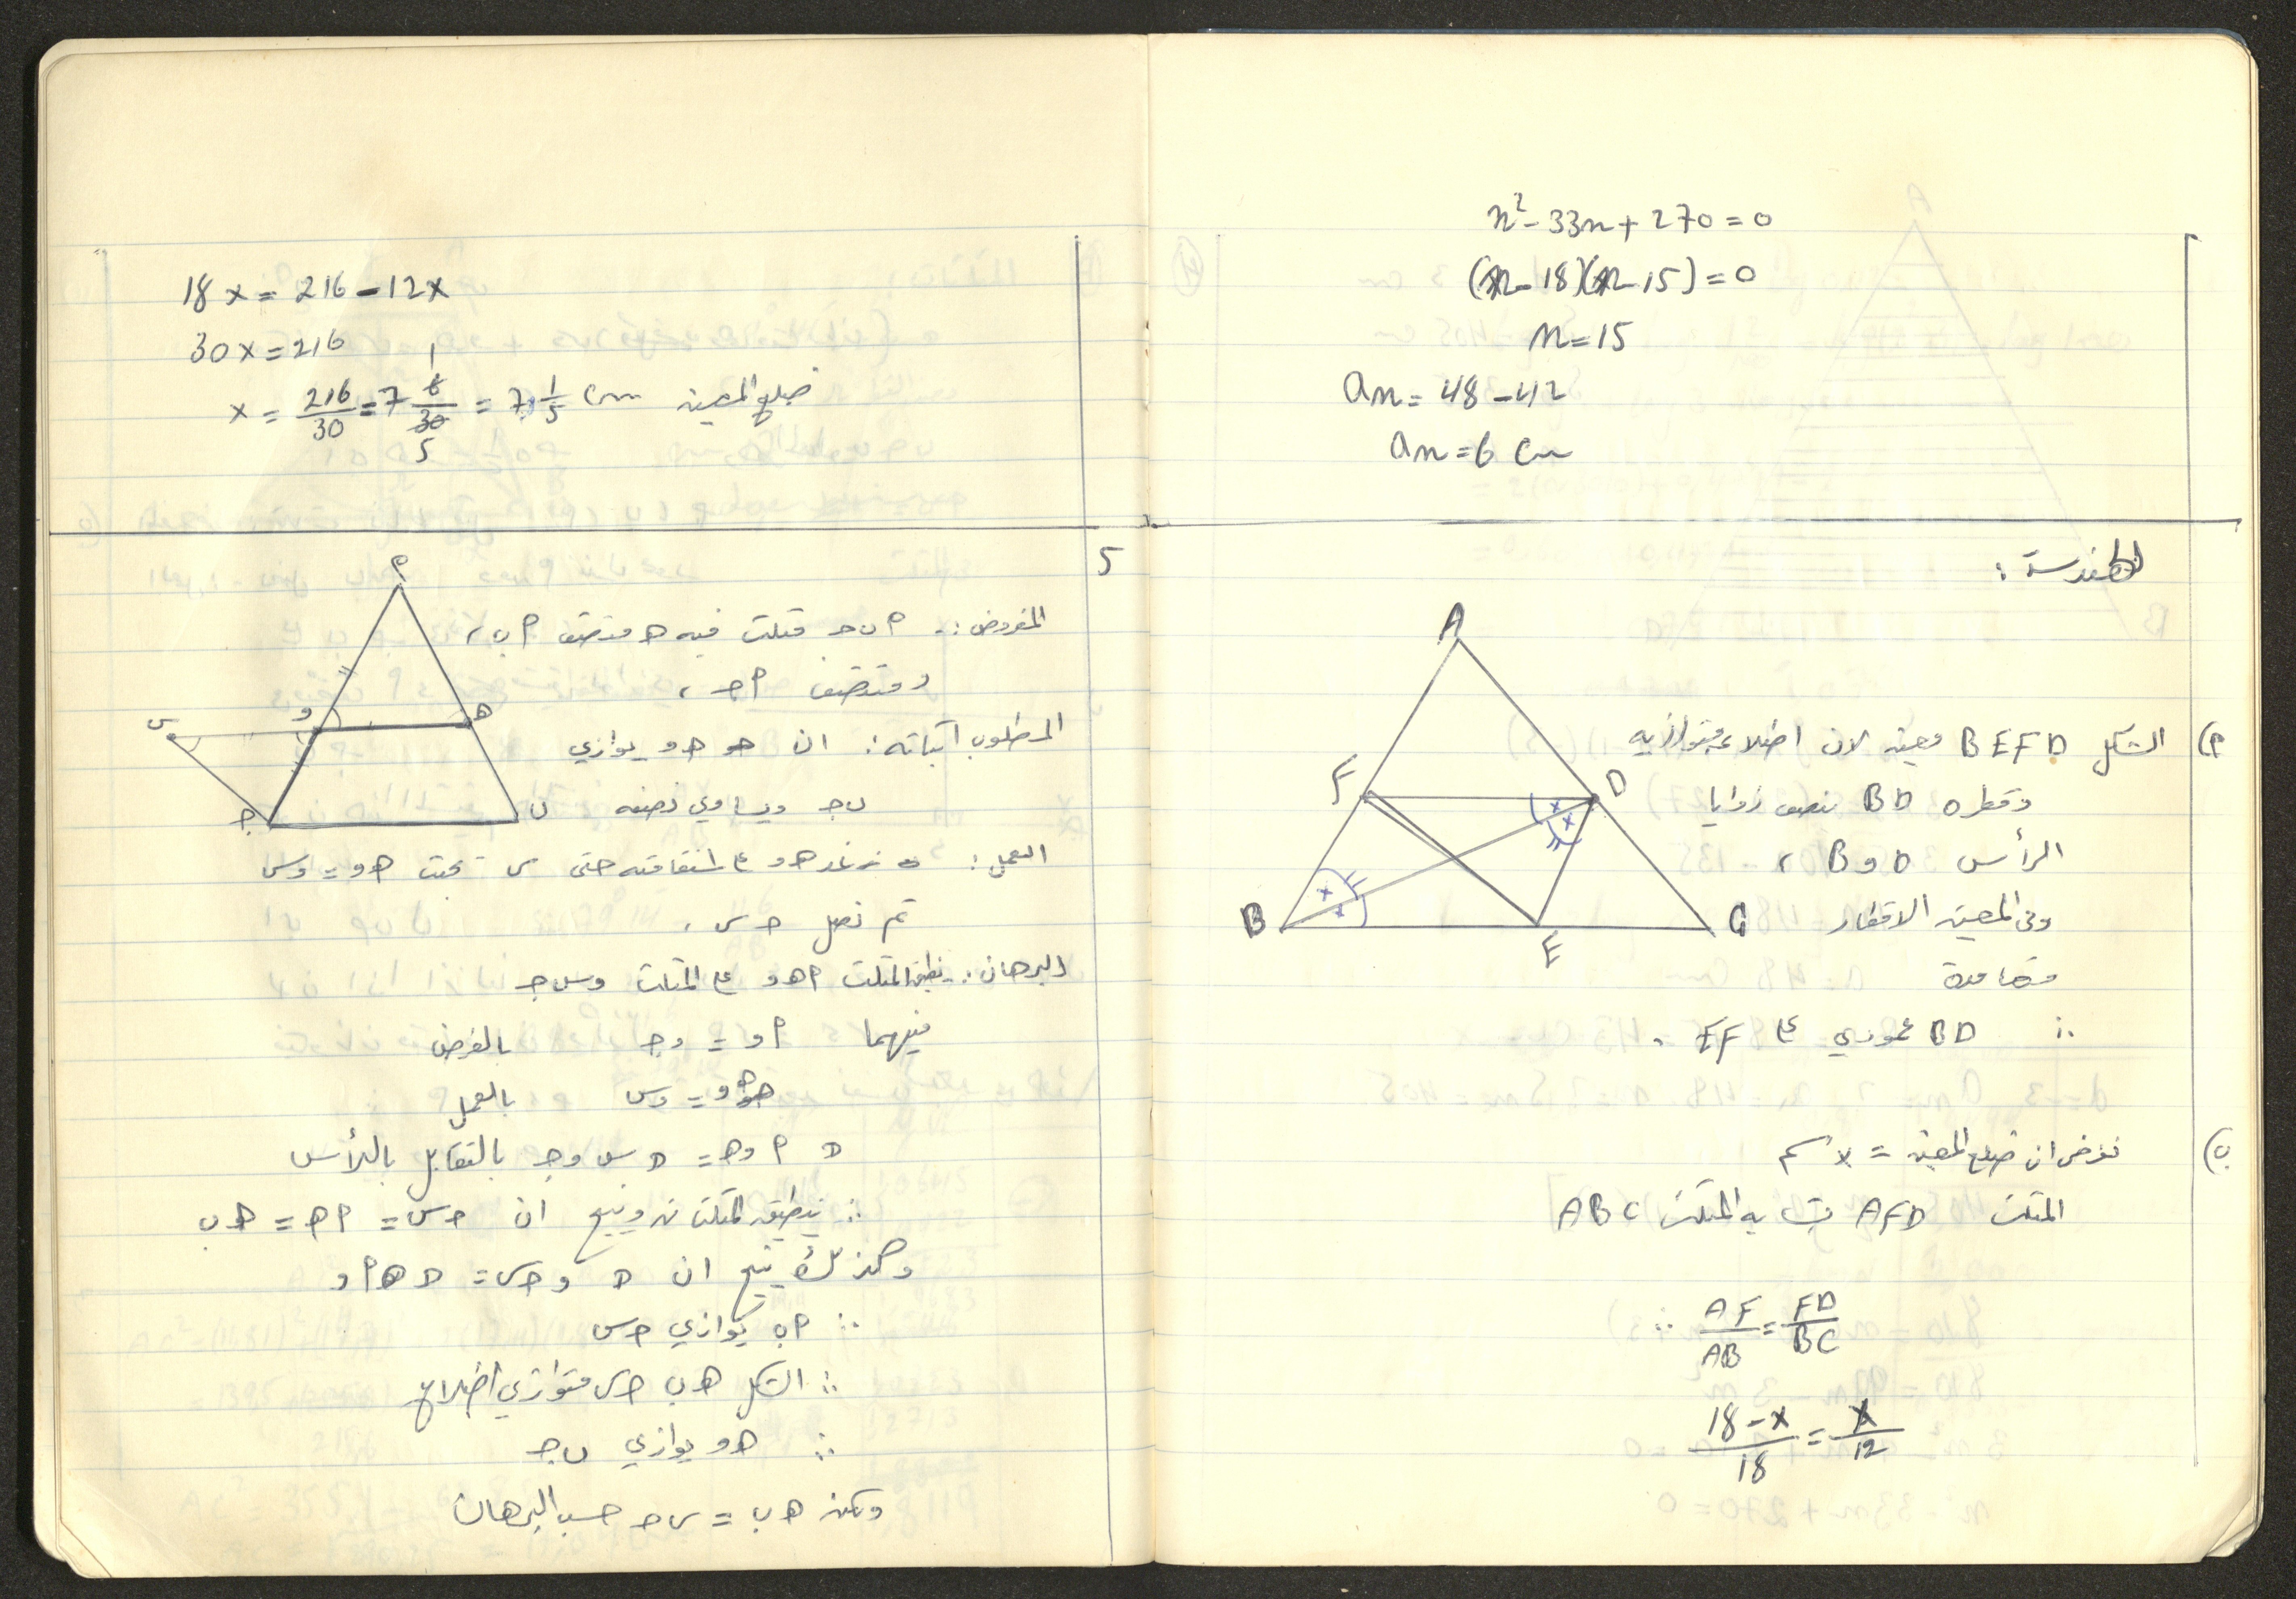 n² - 33n + 270 = 0
(n - 18)(n - 15) = 0
n = 15
an = 48 - 42
an = 6 cm
الهندسة :
A
F
D
B
E
C
أ) الشكل BEFD معين لان اضلاعه متوازيه
وقطره BD ينصف زوايا
الرأس D و B ،
وفي المعين الاقطار
متعامدة
∴ BD عمودي على EF .
ب) نفرض ان ضلع المعين = x سم
المثلث AFD يشابه المثلث ABC
∴ AF/AB = FD/BC
18 - x / 18 = x / 12
18x = 216 - 12x
30x = 216
x = 216/30 = 7 6/30 = 7 1/5 cm ضلع المعين
1
5
٢
أ
س
و
ه
ج
ب
المفروض :. أ ب ج مثلث فيه ه منتصف أ ب ،
و منتصف أ ج ،
المطلوب اثباته : ان ه و يوازي
ب ج ويساوي نصفه
العمل : نمد ه و على استقامته حتى س بحيث ه و = و س
ثم نصل ج س .
البرهان : نطبق المثلث أ ه و على المثلث و س ج
فيهما أ و = و ج بالفرض
ه و = و س بالعمل
∠ أ و ه = ∠ س و ج بالتقابل بالرأس
∴ ينطبق المثلثان وينتج ان ج س = أ ه = ه ب
وكذلك ينتج ان ∠ و ج س = ∠ ه أ و
∴ أ ب يوازي ج س
∴ الشكل ه ب ج س متوازي اضلاع
∴ ه و يوازي ب ج
ولكن ه ب = س ج حسب البرهان